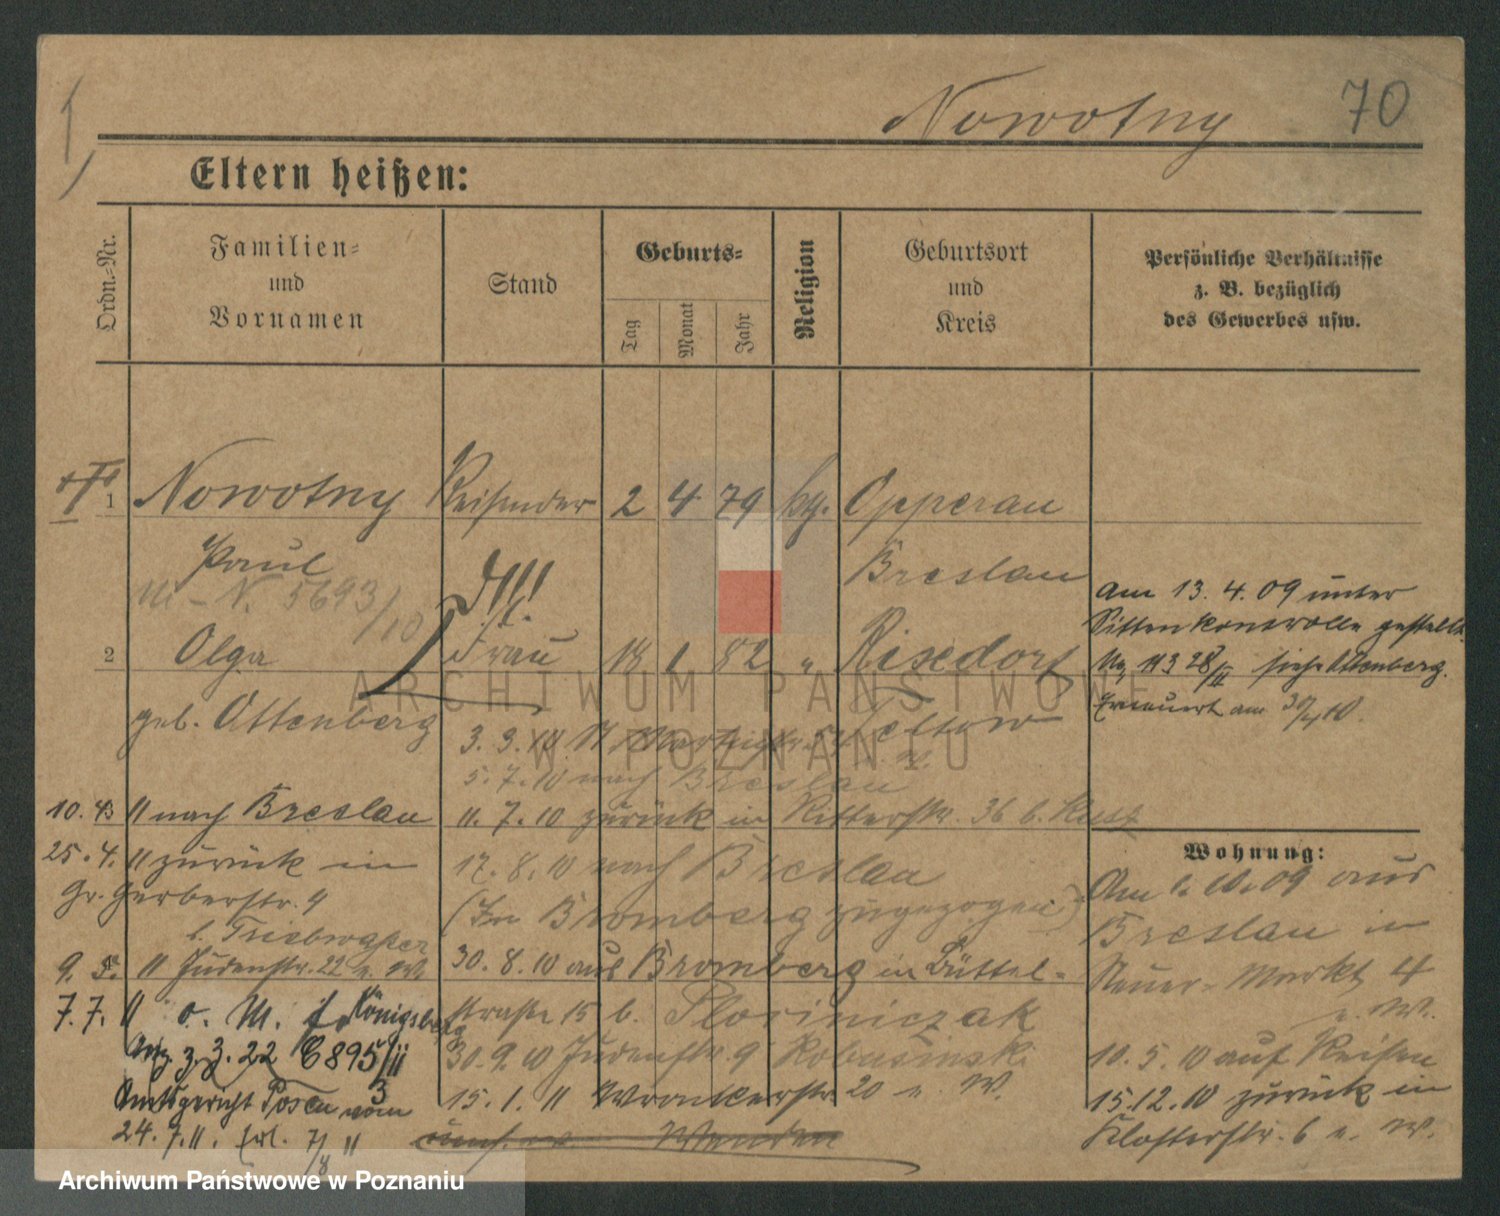 Nowotny 70
Eltern heißen:
Ordn.-Nr.
Familien-
und
Vornamen
Stand
Geburts-
Tag
Monat
Jahr
Religion
Geburtsort
und
Kreis
Persönliche Verhältnisse
z. B. bezüglich
des Gewerbes usw.
1 Nowotny Reisender 2 4 79 kg. Opperau
Paul Breslau
M-N. 5693/10
2 Olga Frau 18 1 82 " Rixdorf
geb. Ottenberg Teltow
Am 13. 4. 09 unter
Sittenkontrolle gestellt.
siehe Ottenberg.
Erneuert am
3. 3. 10
5. 7. 10 nach Breslau
10. 4. 11 nach Breslau
11. 7. 10 zurück in Ritterstr. 36 b.
25. 4. 11 zurück in
Gr. Gerberstr. 9
b. Triebwasser
17. 8. 10 nach Breslau
(In Bromberg zugezogen)
9. 5. 11 Judenstr. 22 e. W.
30. 8. 10 aus Bromberg in Büttel-
straße 15 b. Floriniczak
7. 7. 11 o. M. f. Königsberg
30. 9. 10 Judenstr. 9
3. 22 C 895/11
Amtsgericht Posen vom
24. 7. 11. Erl. 7/8 11
15. 1. 11 Wronkerstr. 20 e. W.
Wohnung:
Am 1. 10. 09 aus
Breslau in
Neuer-Markt 4
e. W.
10. 5. 10 auf Reisen
15. 12. 10 zurück in
Klosterstr. 6 e. W.
ARCHIWUM PAŃSTWOWE
W POZNANIU
Archiwum Państwowe w Poznaniu